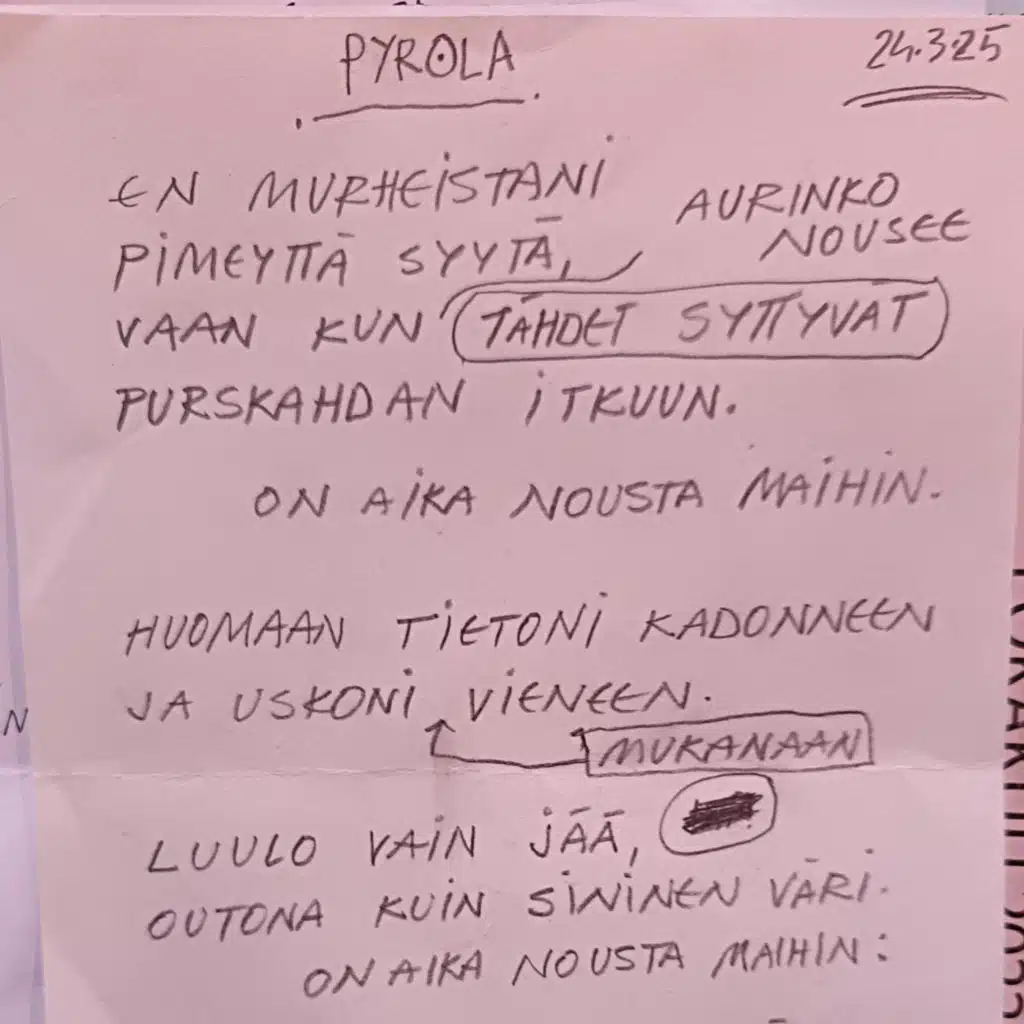 PYROLA
24.3.25
EN MURHEISTANI
PIMEYTTÄ SYYTÄ,
AURINKO
NOUSEE
VAAN KUN TÄHDET SYTTYVÄT
PURSKAHDAN ITKUUN.
ON AIKA NOUSTA MAIHIN.
HUOMAAN TIETONI KADONNEEN
JA USKONI VIENEEN.
MUKANAAN
LUULO VAIN JÄÄ,
OUTONA KUIN SININEN VÄRI.
ON AIKA NOUSTA MAIHIN:
N